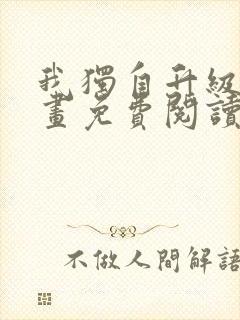 我獨自升級
畫免費閱讀
不做人間解語